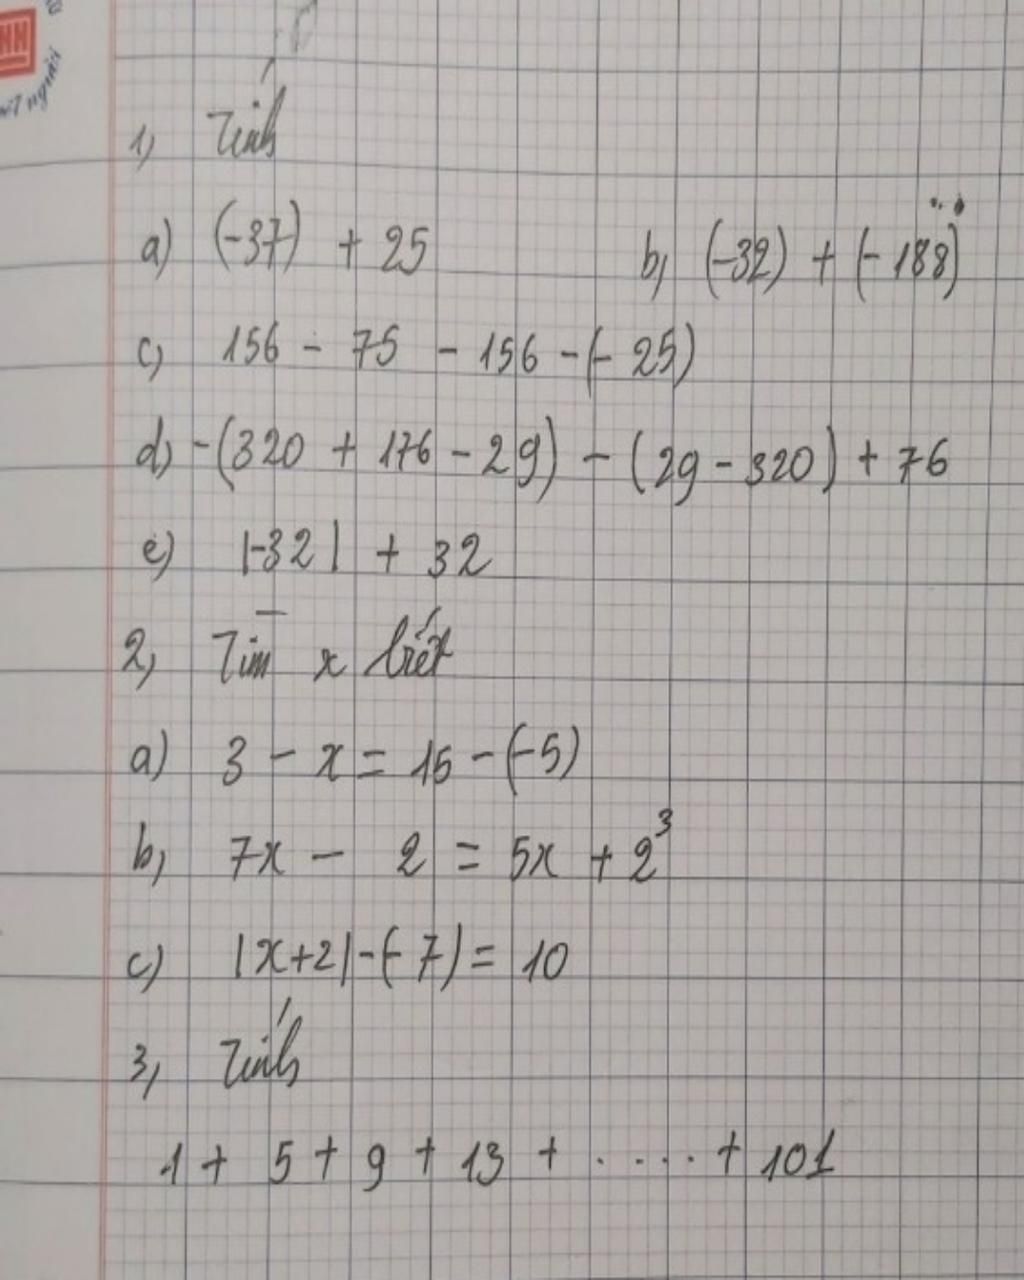 người
1, Tính
a) (-37) + 25 b, (-32) + (-188)
c, 156 - 75 - 156 - (- 25)
d, -(320 + 176 - 29) - (29 - 320) + 76
e) |-32| + 32
2, Tìm x biết
a) 3 - x = 15 - (-5)
b, 7x - 2 = 5x + 2³
c) |x+2| - (- 7) = 10
3, Tính
1 + 5 + 9 + 13 + ..... + 101